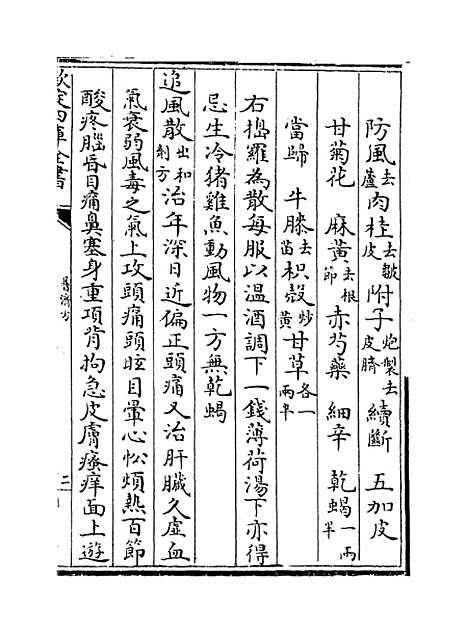 防風去蘆肉桂去皺皮附子炮製去皮臍續斷 五加皮
甘菊花 麻黃去根節赤芍藥 細辛 乾蝎一兩半
當歸 牛膝去苗枳殼炒黃甘草各一兩半
右搗羅為散每服以温酒調下一錢薄荷湯下亦得
忌生冷猪雞魚動風物一方無乾蝎
追風散出和劑方治年深日近偏正頭痛又治肝臟久虛血
氣衰弱風毒之氣上攻頭痛頭眩目暈心忪煩熱百節
酸疼腦昏目痛鼻塞身重項背拘急皮膚瘙痒面上遊
欽定四庫全書
普濟方